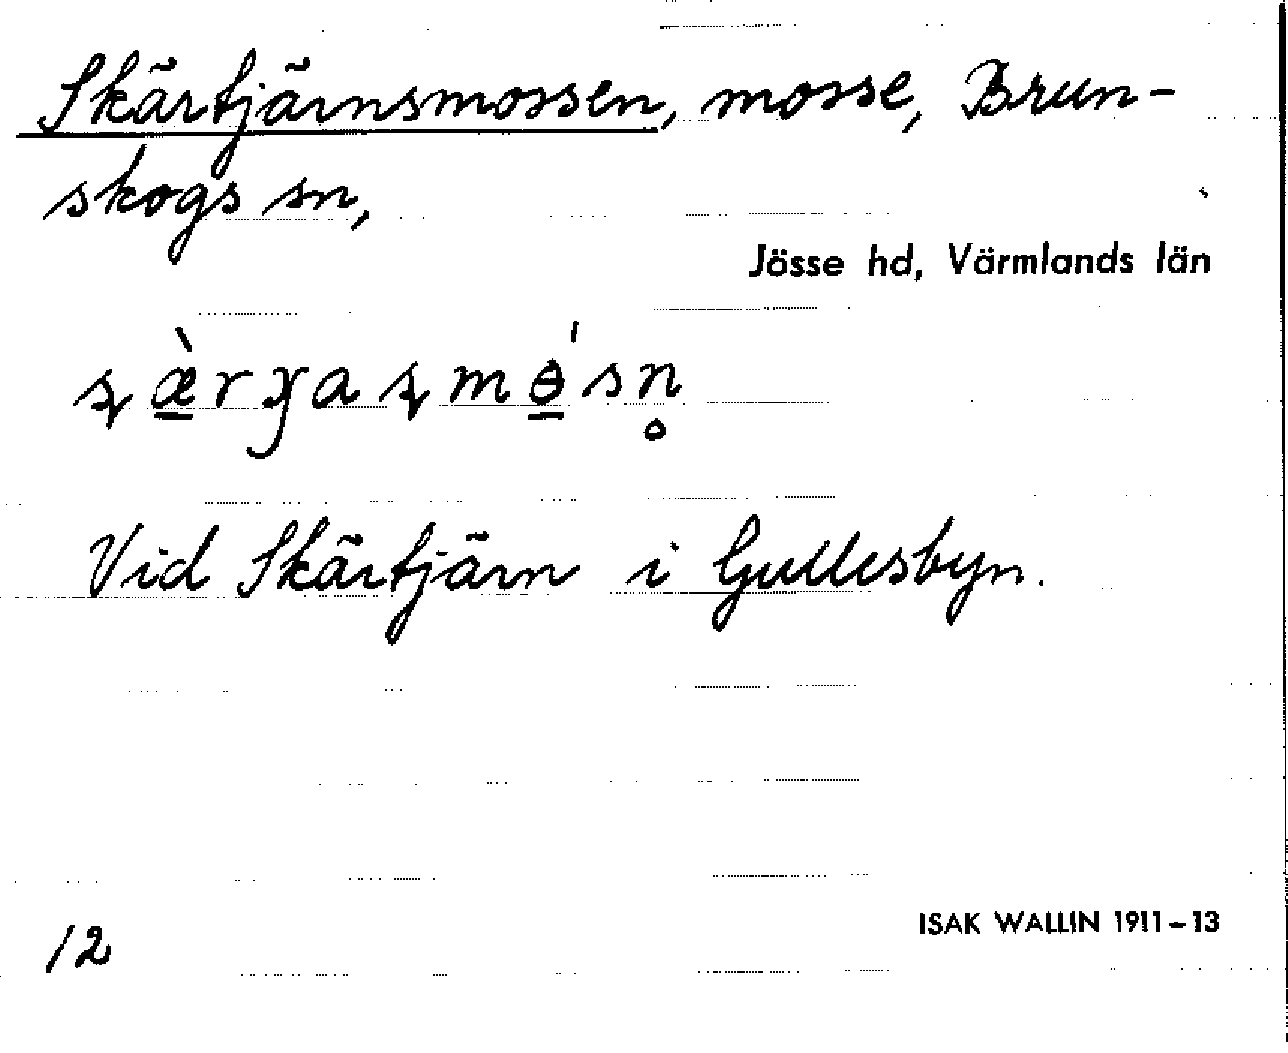 Skärtjärnsmossen, mosse, Brun-
skogs sn,
Jösse hd, Värmlands län
Vid Skärtjärn i Gullesbyn.
12
ISAK WALLIN 1911-13